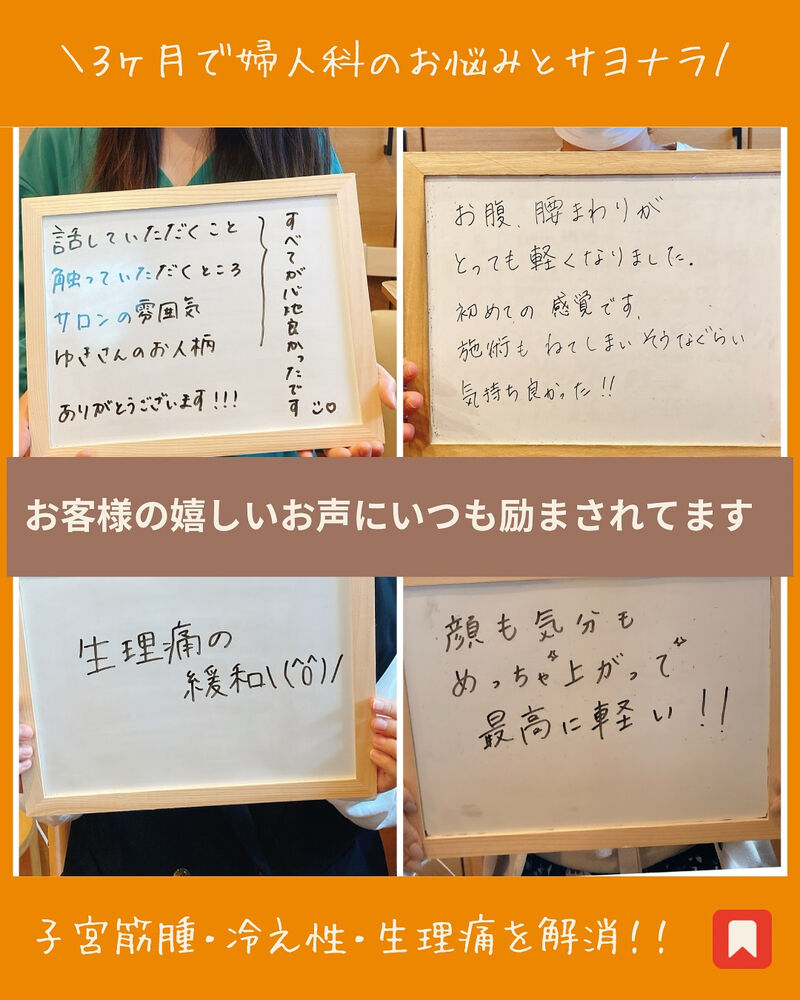 \3ヶ月で婦人科のお悩みとサヨナラ/
話していただくこと
触っていただくところ
サロンの雰囲気
ゆきさんのお人柄
すべてが心地良かったです
ありがとうございます!!!
お腹、腰まわりが
とっても軽くなりました.
初めての感覚です.
施術もねてしまいそうなぐらい
気持ち良かった!!
お客様の嬉しいお声にいつも励まされてます
生理痛の
緩和\(^o^)/
顔も気分も
めっちゃ上がって
最高に軽い!!
子宮筋腫・冷え性・生理痛を解消!!